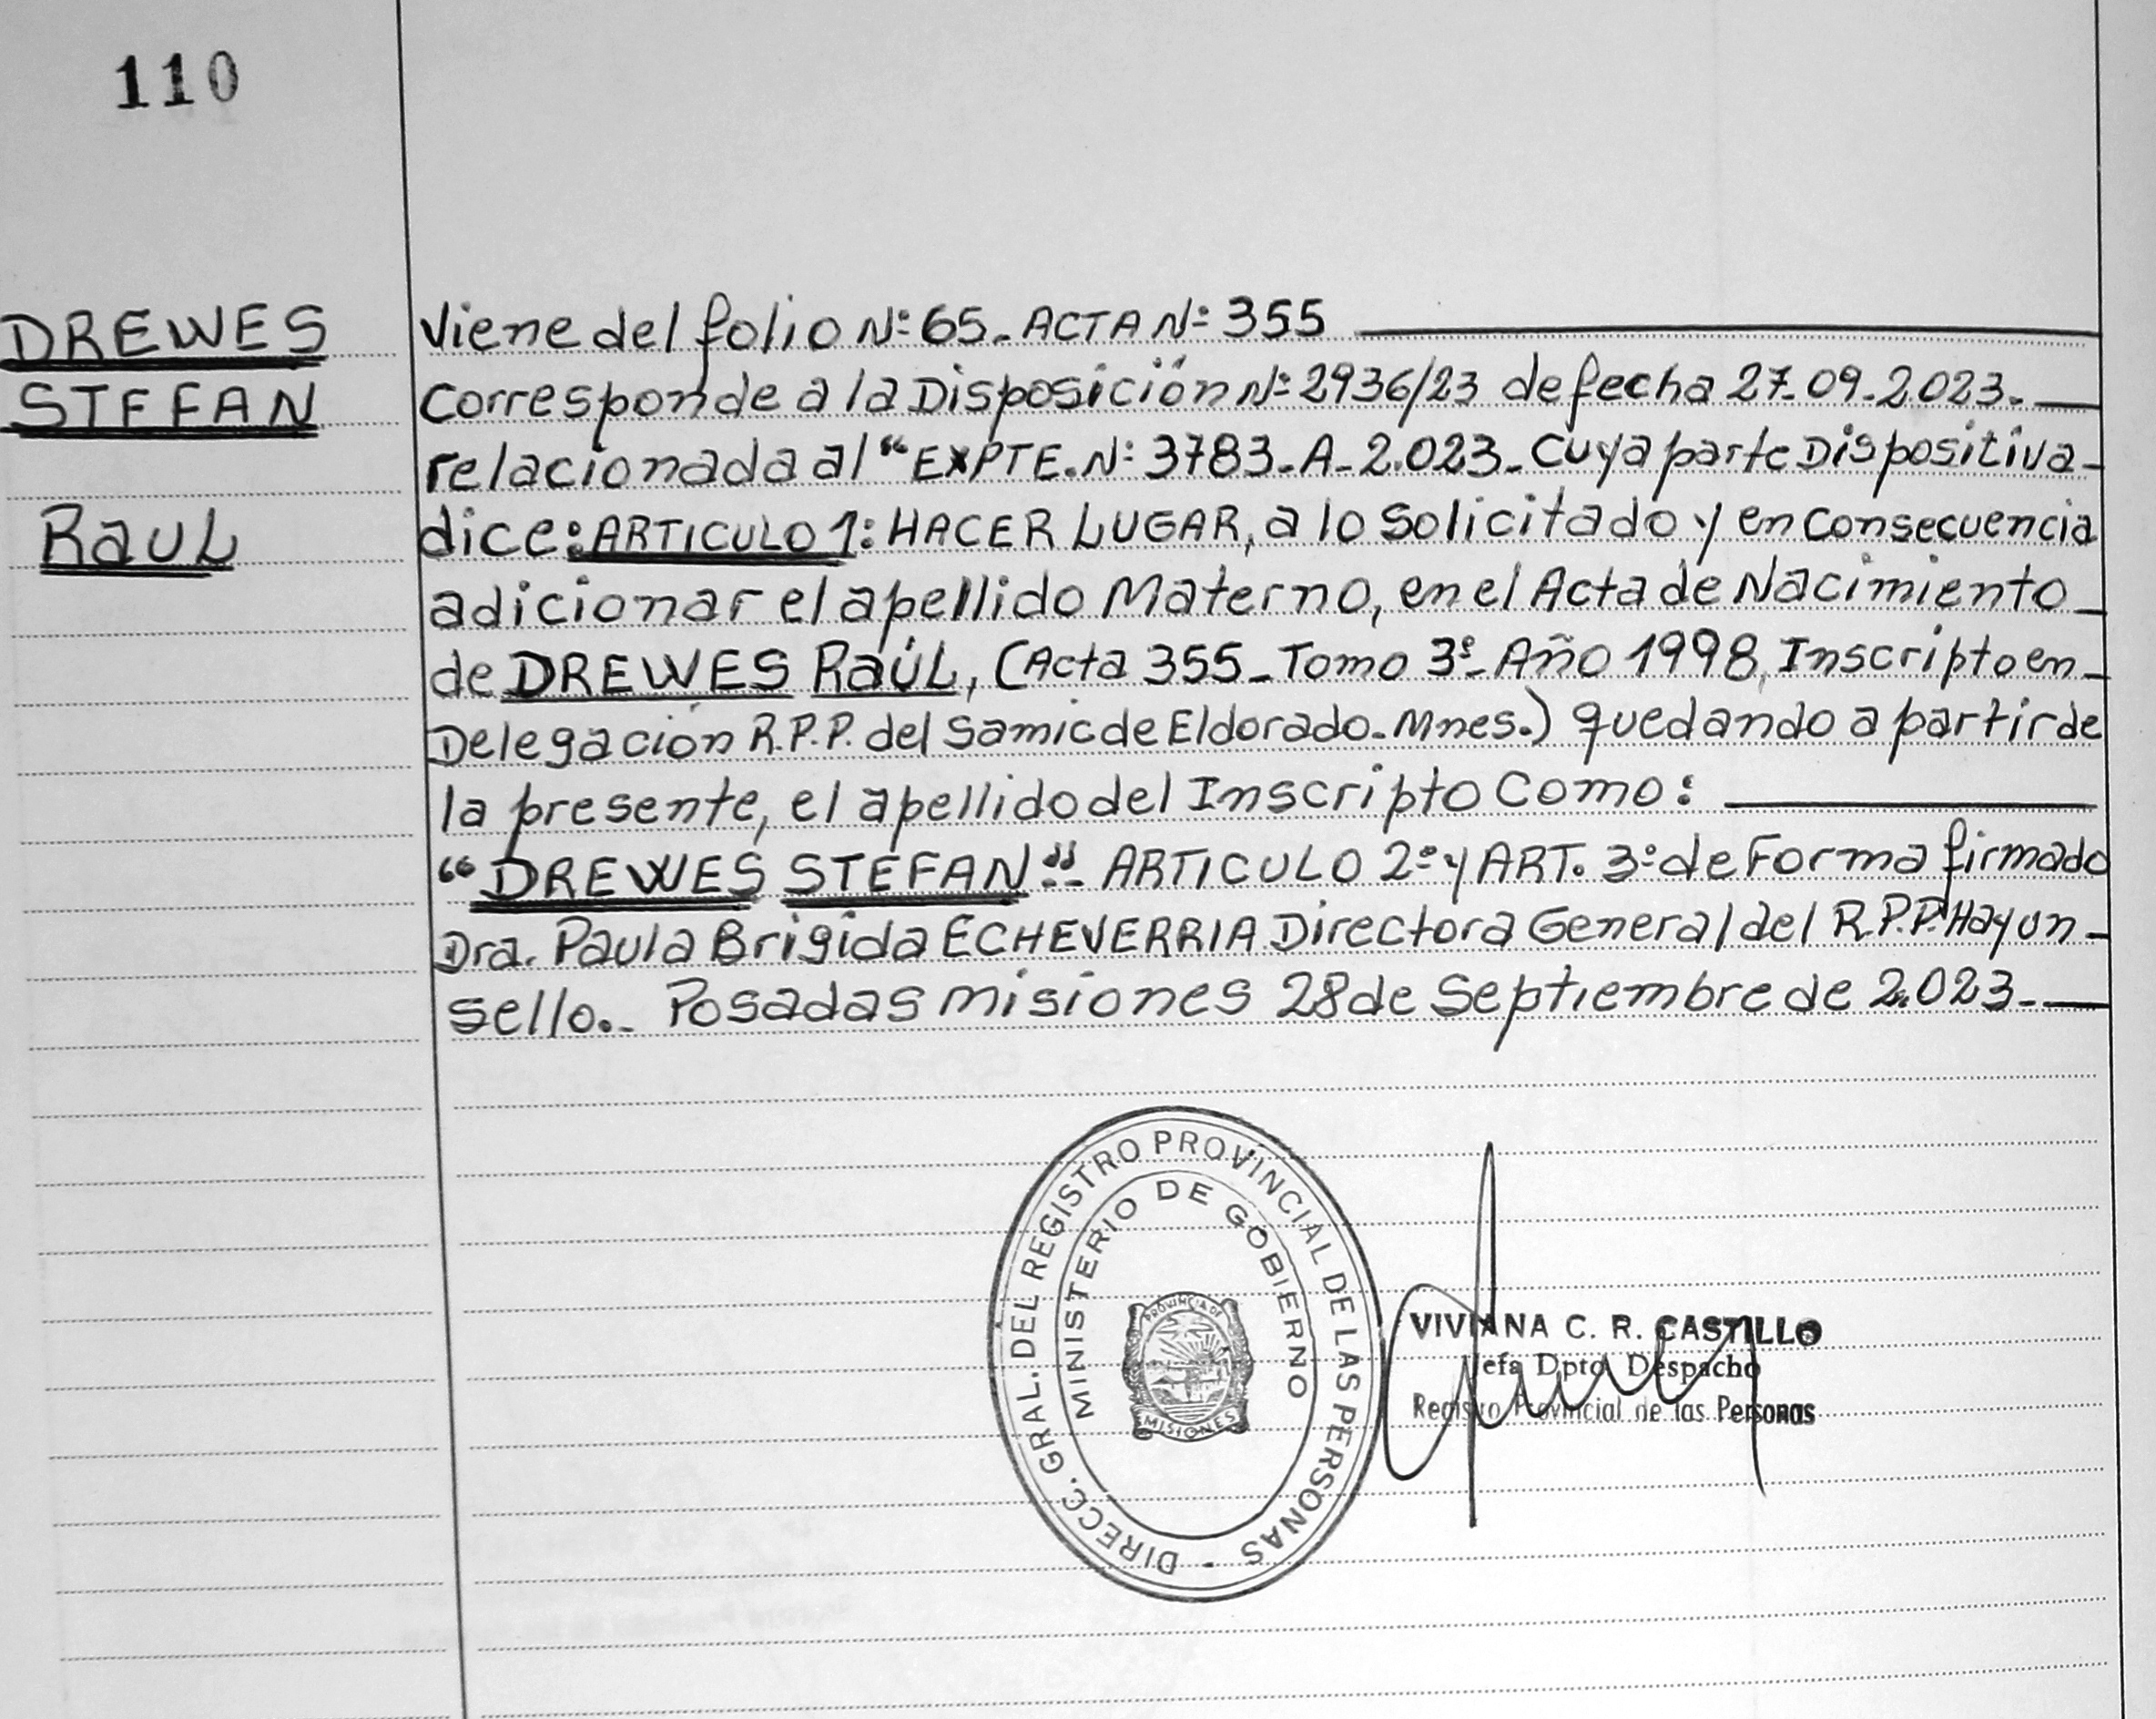 110
DREWES
STEFAN
Raul
Viene del folio Nº 65. ACTA Nº 355
Corresponde a la Disposición Nº 2936/23 de fecha 27-09-2.023.
relacionada al "EXPTE. Nº 3783-A-2.023- Cuya parte Dispositiva
dice: ARTICULO 1: HACER LUGAR, a lo Solicitado y en Consecuencia
adicionar el apellido Materno, en el Acta de Nacimiento
de DREWES Raúl, (Acta 355- Tomo 3º- Año 1998, Inscripto en
Delegación R.P.P. del Samic de Eldorado. Mnes.) quedando a partir de
la presente, el apellido del Inscripto Como:
"DREWES STEFAN".- ARTICULO 2º y ART. 3º de Forma firmado
Dra. Paula Brigida ECHEVERRIA Directora General del R.P.P. Hay un
sello.- Posadas misiones 28 de Septiembre de 2.023-
DIRECC. GRAL. DEL REGISTRO PROVINCIAL DE LAS PERSONAS -
MINISTERIO DE GOBIERNO
PROVINCIA DE
MISIONES
VIVIANA C. R. CASTILLO
Jefa Dpto Despacho
Registro Provincial de las Personas